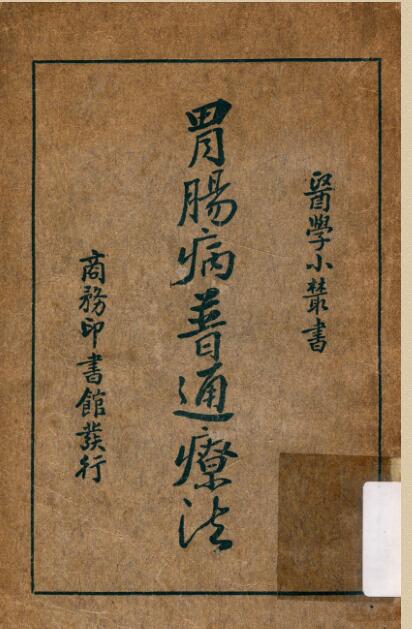 醫學小叢書
胃腸病普通療法
商務印書館發行